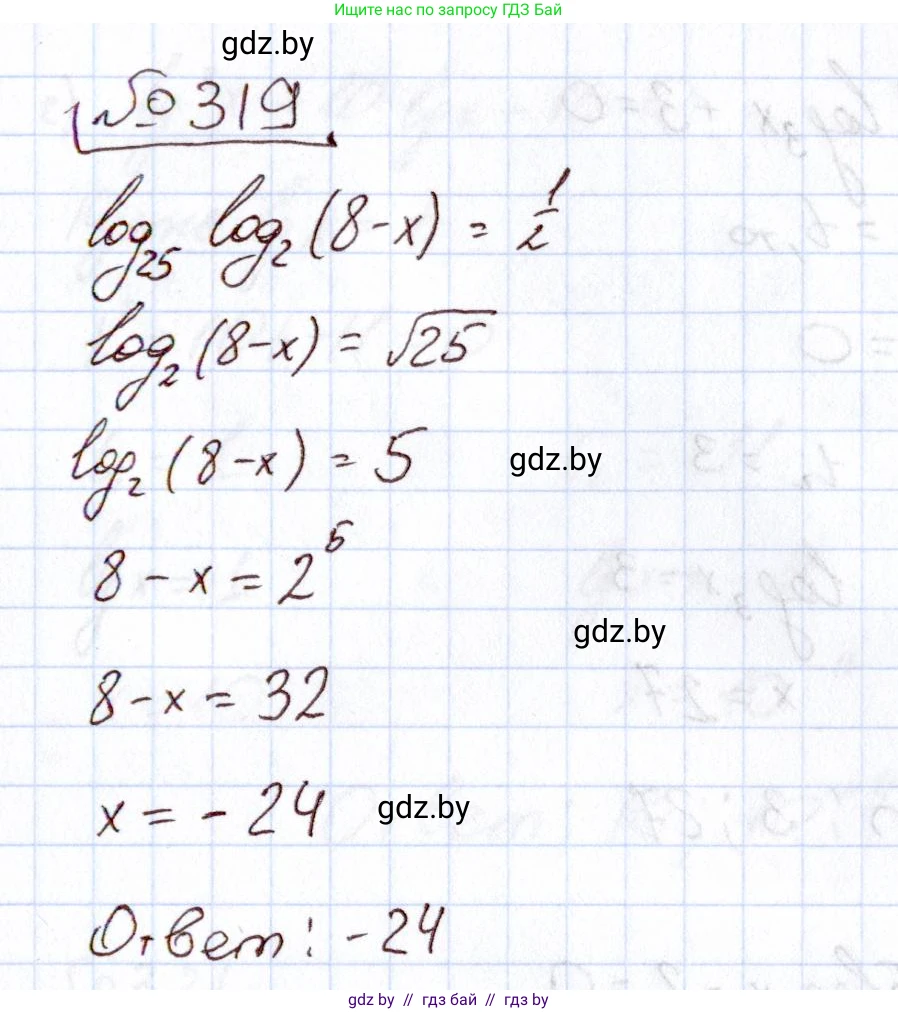 Ищите нас по запросу ГДЗ Бай
gdz.by
№319
log₂₅ log₂ (8-x) = 1/2
log₂ (8-x) = √25
log₂ (8-x) = 5
gdz.by
8 - x = 2⁵
gdz.by
8-x = 32
x = - 24
gdz.by
Ответ: -24
gdz.by // гдз бай // гдз by